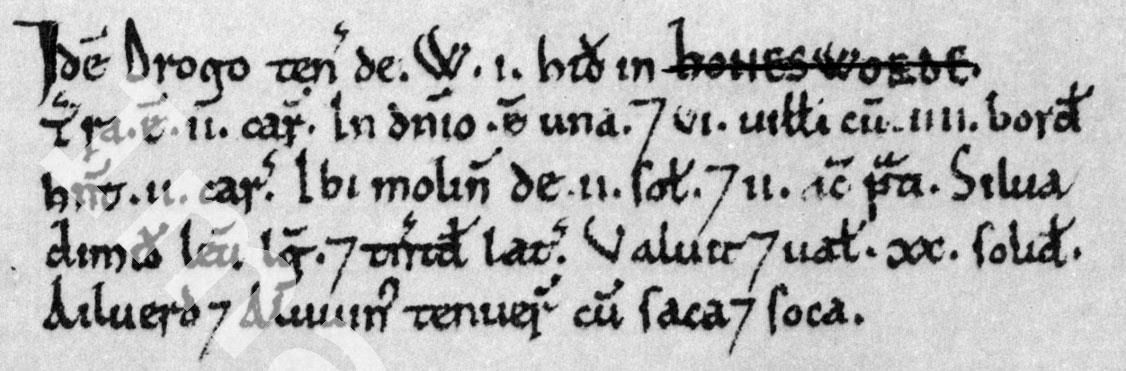 Idē Drogo ten̄ de. W. i. hid̄ in HONESWORDE.
T̄ra. ē. ii. car̄. In dn̄io .ē una. ⁊ vi. uilłi cū. iiii. bord̄
hn̄t. ii. car̄. Ibi molin̄ de .ii. soł. ⁊ ii. ac̄ p̄ti. Silua
dimid̄ leū lḡ. ⁊ tn̄td̄ lat̄. Valuit ⁊ uał. xx. solid̄.
Ailuerd ⁊ Aluuin᾽ tenuer̄ cū saca ⁊ soca.